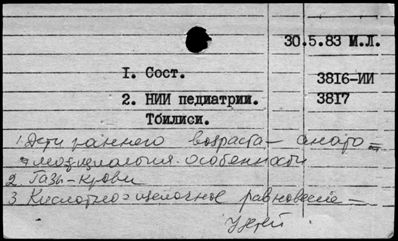 30.5.83 М.Л.
1. Сост. 3816-ИИ
2. НИИ педиатрии. 3817
Тбилиси.
1. Дети раннего возраста - анато=
=мо-физиология. особенности
2. Газы - крови
3 Кислотно-щелочное равновесие -
у детей